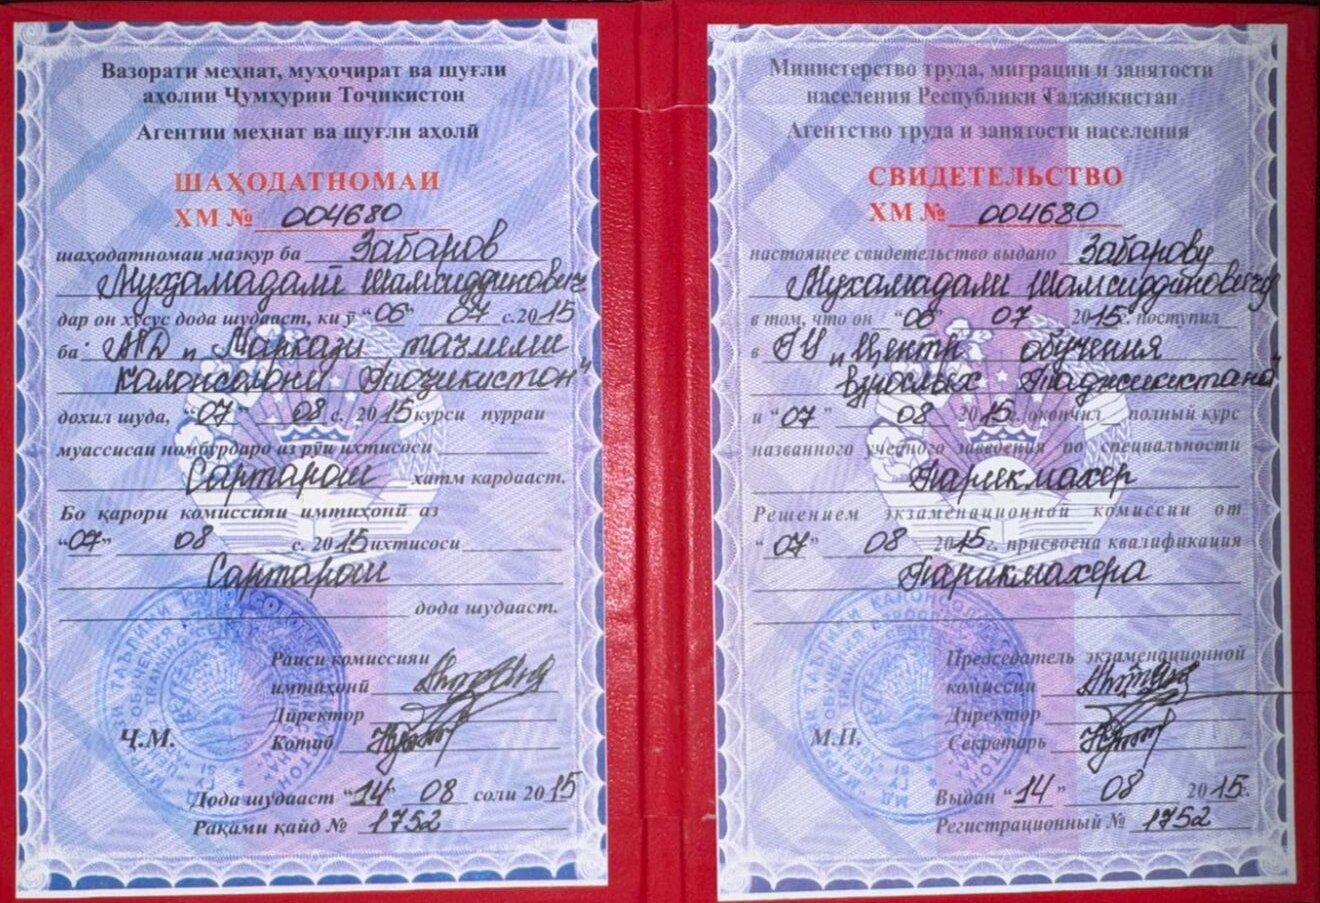 Вазорати меҳнат, муҳоҷират ва шуғли
аҳолии Ҷумҳурии Тоҷикистон
Агентии меҳнат ва шуғли аҳолӣ
ШАҲОДАТНОМАИ
ХМ № 004680
шаҳодатномаи мазкур ба Забаров
Муҳамадалӣ Шамсиддинович
дар он хусус дода шудааст, ки ӯ “06” 07 с. 2015
ба МД „Маркази таълими
калонсолони Тоҷикистон“
дохил шуда, “07” 08 с. 2015 курси пурраи
муассисаи номбурдаро аз рӯи ихтисоси
Сартарош хатм кардааст.
Бо қарори комиссияи имтиҳонӣ аз
“07” 08 с. 2015 ихтисоси
Сартарош
дода шудааст.
Раиси комиссияи
имтиҳонӣ
Директор
Котиб
Ҷ.М.
Дода шудааст “14” 08 соли 2015
Рақами қайд № 1752
Министерство труда, миграции и занятости
населения Республики Таджикистан
Агентство труда и занятости населения
СВИДЕТЕЛЬСТВО
ХМ № 004680
настоящее свидетельство выдано Забарову
Мухамадали Шамсиддиновичу
в том, что он “06” 07 2015г. поступил
в ГУ „Центр обучения
взрослых Таджикистана“
и “07” 08 2015г. окончил полный курс
названного учебного заведения по специальности
Парикмахер
Решением экзаменационной комиссии от
“07” 08 2015г. присвоена квалификация
Парикмахера
Председатель экзаменационной
комиссии
Директор
Секретарь
М.П.
Выдан “14” 08 2015г.
Регистрационный № 1752